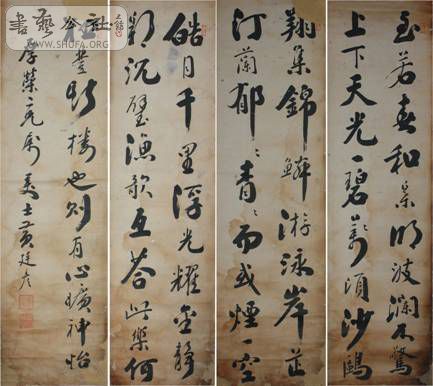 至若春和景明波瀾不驚
上下天光一碧萬頃沙鷗
翔集錦鱗游泳岸芷
汀蘭郁〻青〻而或煙一空
皓月千里浮光耀金靜
影沉璧漁歌互答此樂何
極登斯樓也則有心曠神怡
士黃廷彥
書藝公社
WWW.SHUFA.ORG